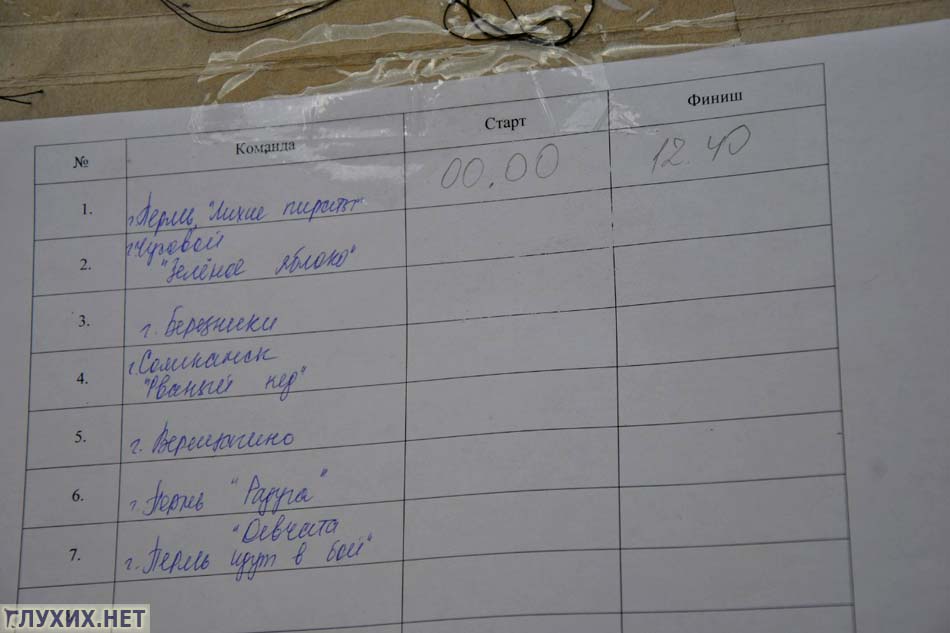 № Команда Старт Финиш
1. г. Пермь, "Лихие пираты" 00.00 12.40
2. г. Чусовой
"Зелёное яблоко"
3. г. Березники
4. г. Соликамск
"Рваный кед"
5. г. Верещагино
6. г. Пермь "Радуга"
7. г. Пермь "Девчата
идут в бой"
ГЛУХИХ.НЕТ